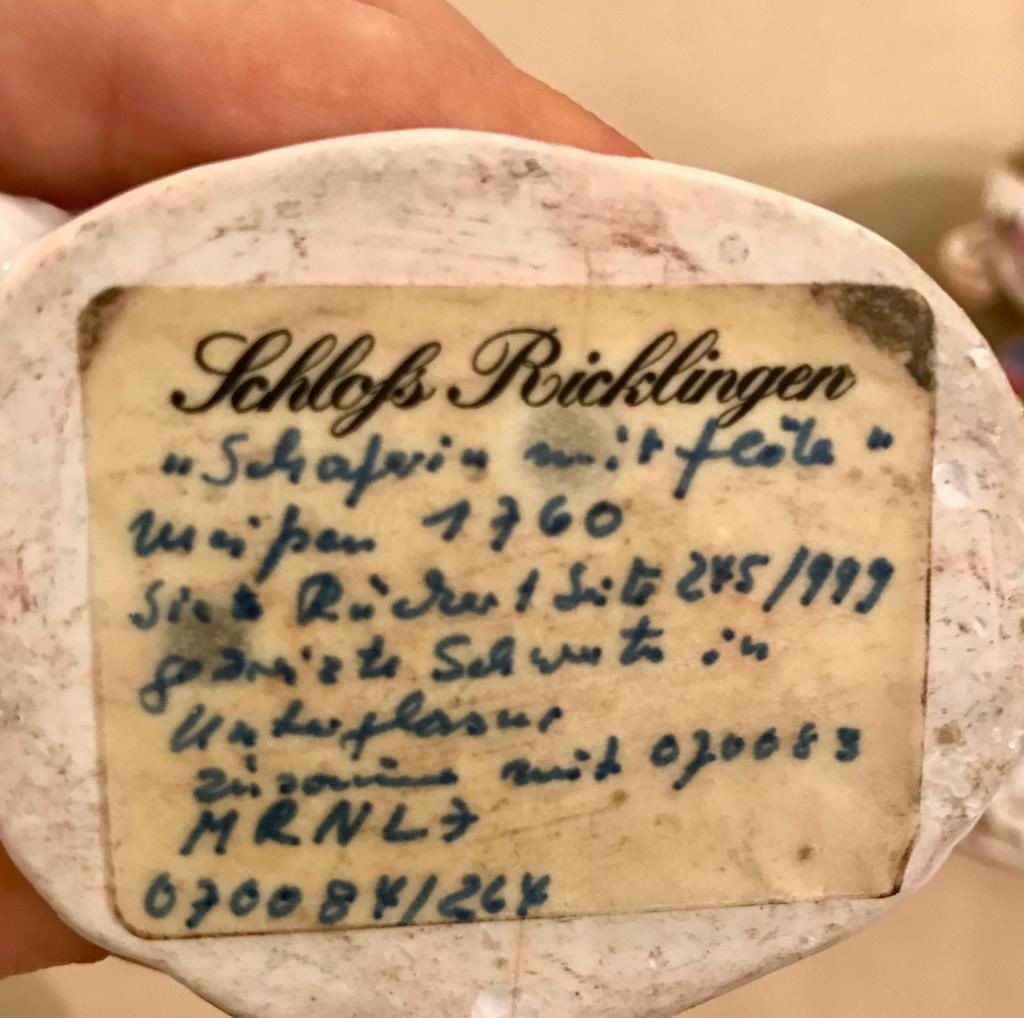 Schloß Ricklingen
"Schäferin mit Flöte"
Meißen 1760
Siehe Rückert Seite 245/999
gekreuzte Schwerter in
Unterglasur
zusammen mit 070083
MRNL7
070084/264